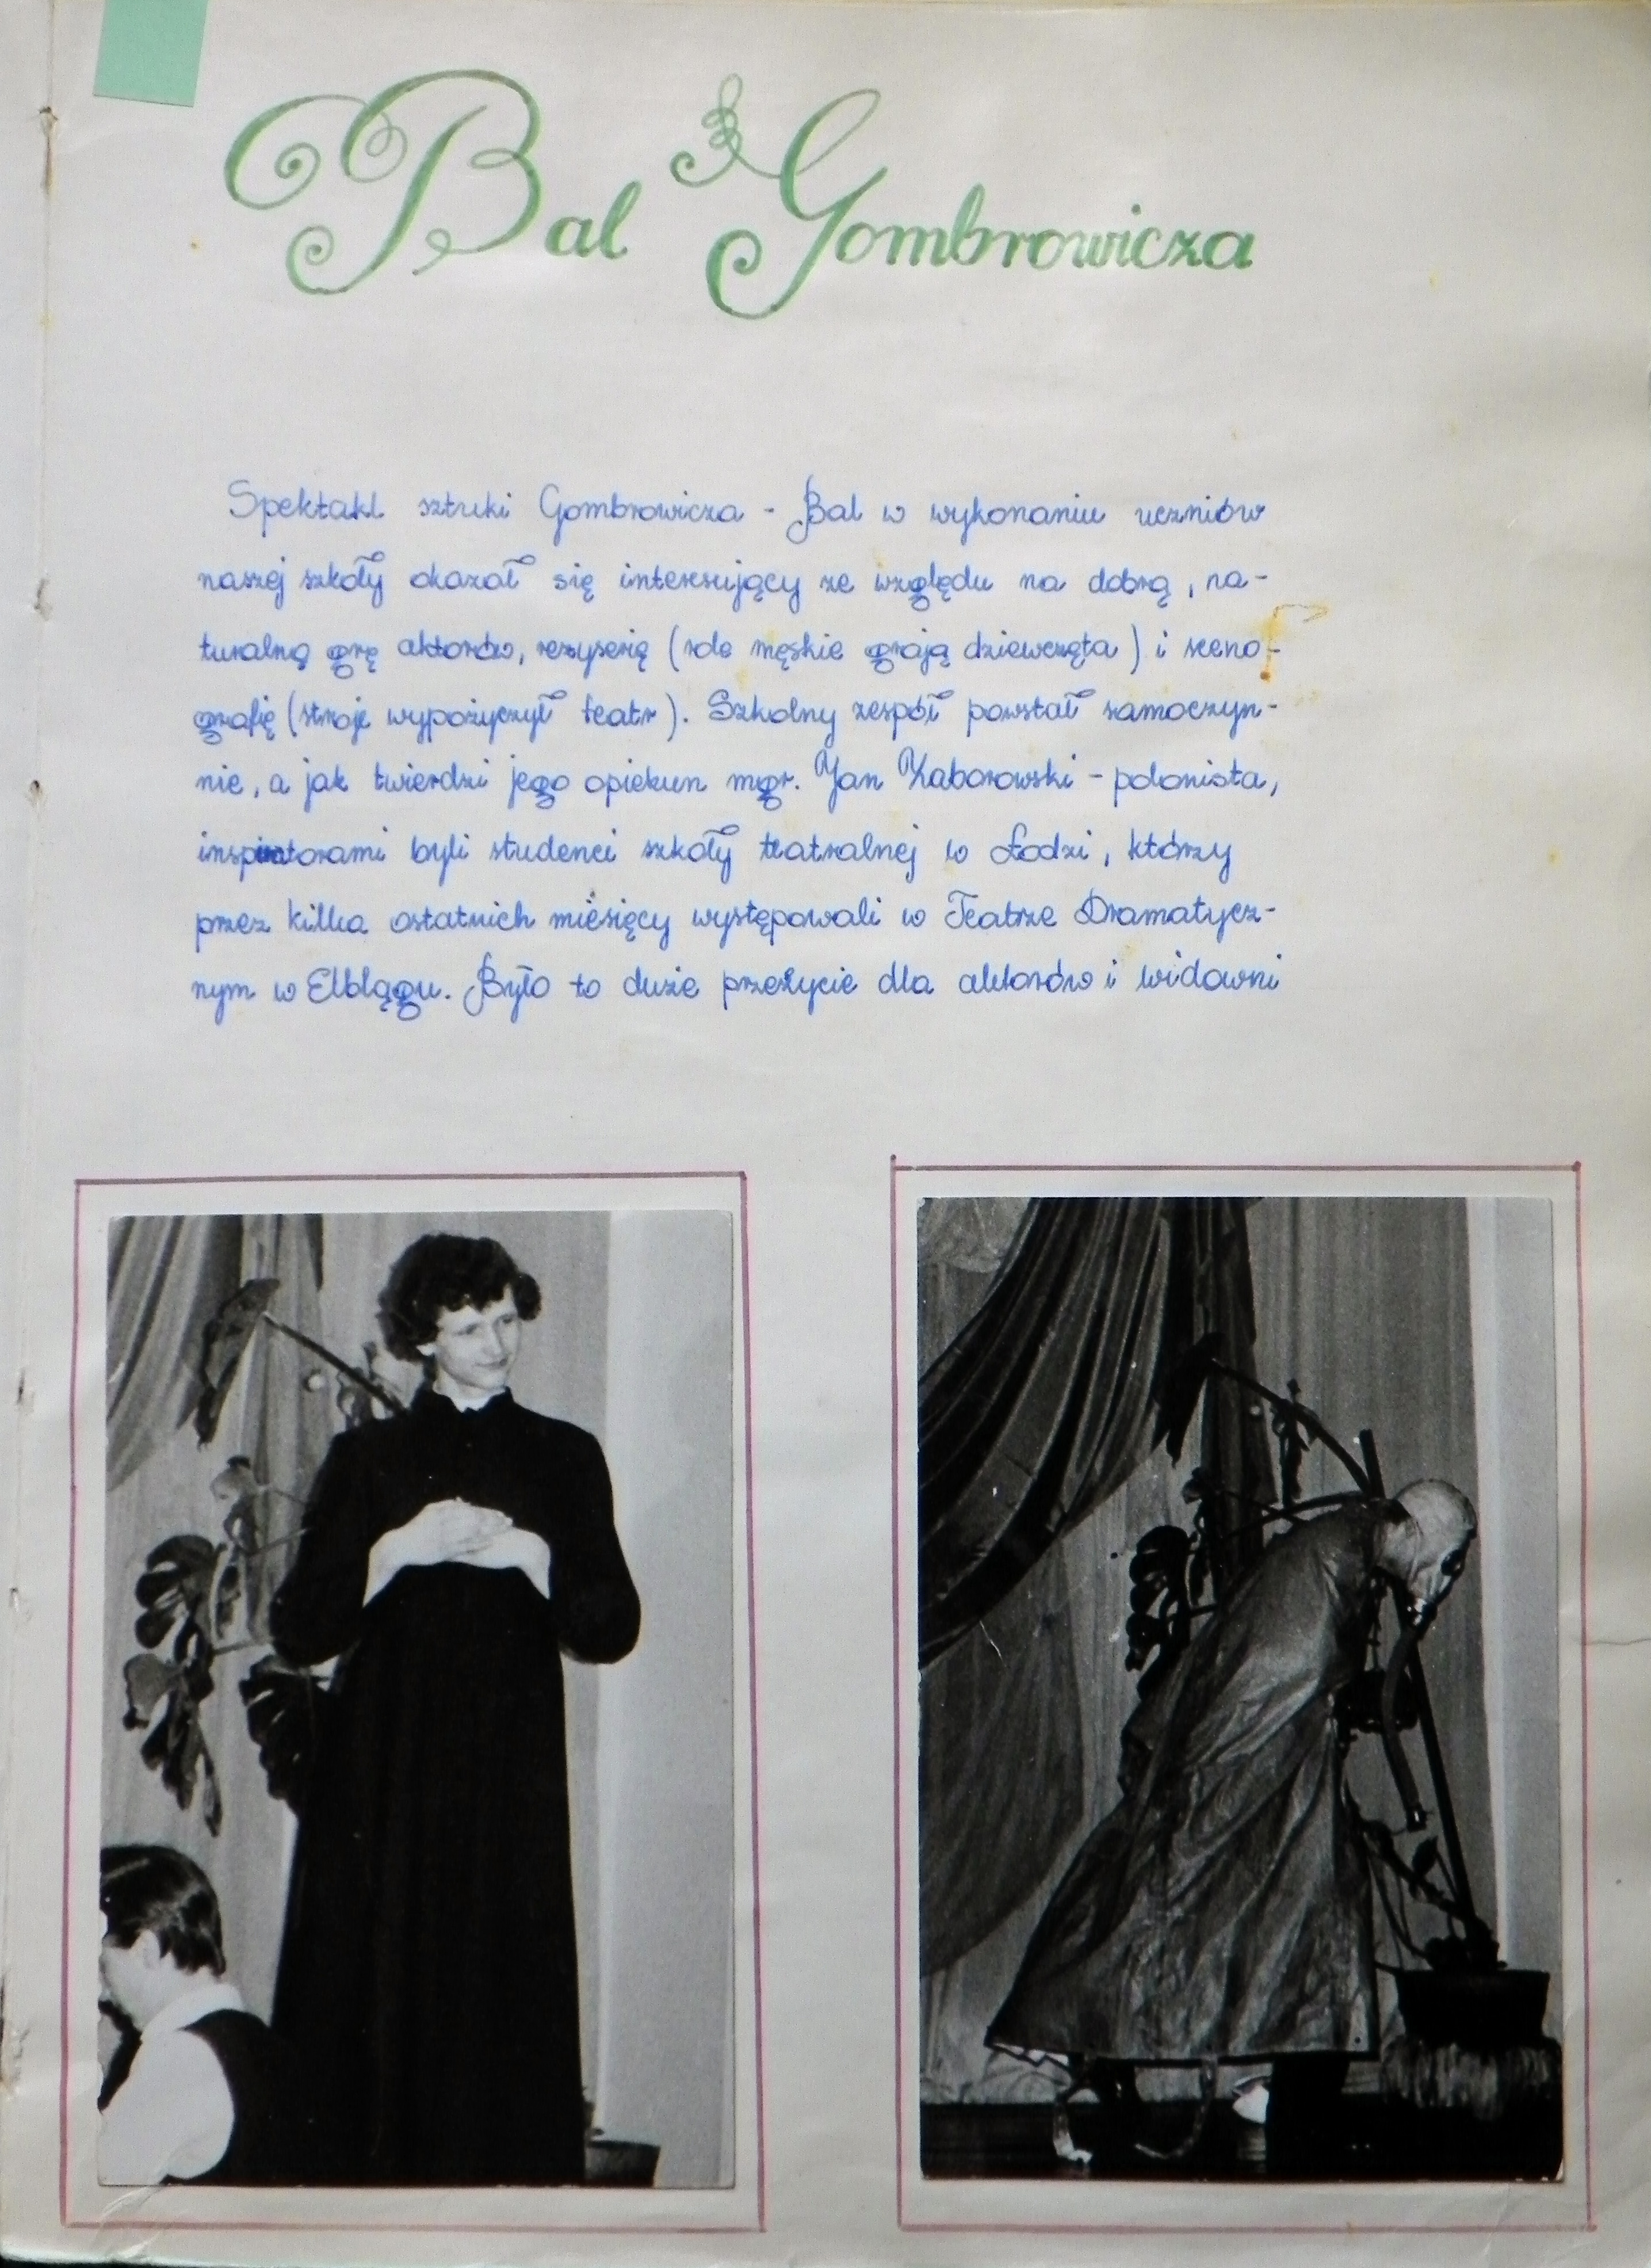 Bal Gombrowicza
Spektakl sztuki Gombrowicza - Bal w wykonaniu uczniów
naszej szkoły okazał się interesujący ze względu na dobrą, na-
turalną grę aktorów, reżyserię (role męskie grają dziewczęta) i sceno-
grafię (stroje wypożyczył teatr). Szkolny zespół powstał samoczyn-
nie, a jak twierdzi jego opiekun mgr. Jan Zaborowski - polonista,
inspiratorami byli studenci szkoły teatralnej w Łodzi, którzy
przez kilka ostatnich miesięcy występowali w Teatrze Dramatycz-
nym w Elblągu. Było to duże przeżycie dla aktorów i widowni